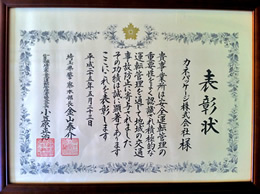 表彰状
カネパッケージ株式会社 様
貴事業所は安全運転管理の
重要性をよく認識され積極的な
運転管理を通じて地域の交通
事故防止に寄与されました
その功績は誠に顕著であります
ここにこれを表彰します
平成二十五年五月二十三日
埼玉県警察本部長 金山泰介